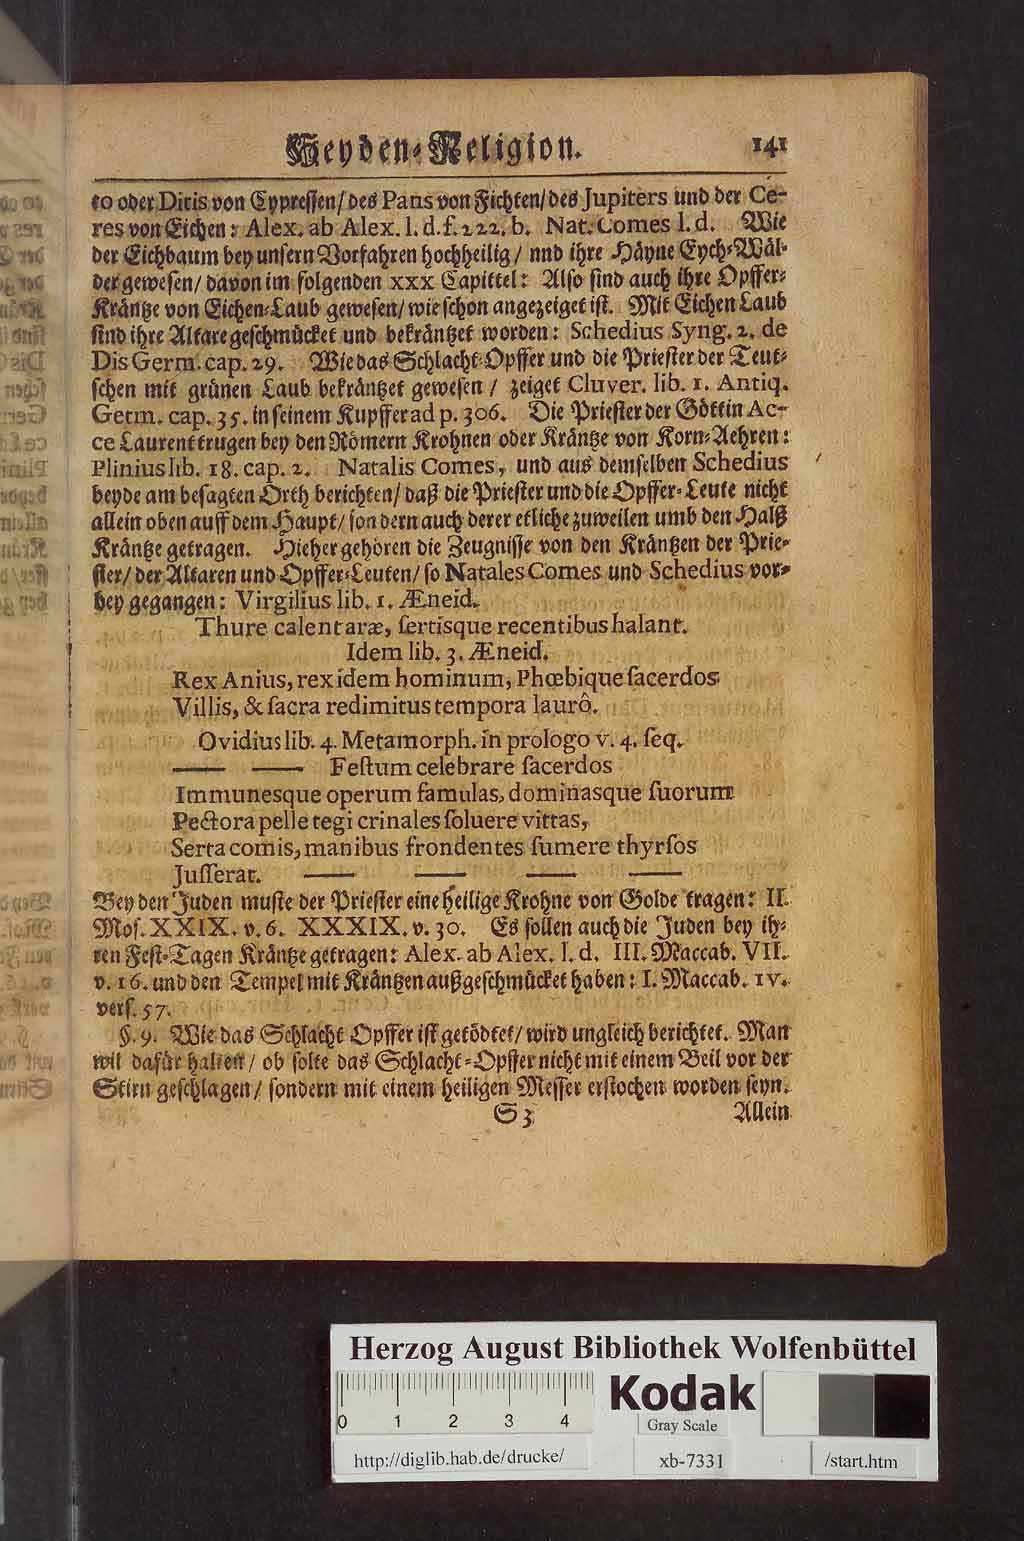 Heyden-Religion. 141
to oder Ditis von Cypressen/ des Pans von Fichten/ des Jupiters und der Ce-
res von Eichen: Alex. ab Alex. l. d. f. 222. b. Nat. Comes l. d. Wie
der Eichbaum bey unsern Vorfahren hochheilig/ nnd ihre Häyne Eych-Wäl-
der gewesen/ davon im folgenden XXX Capittel: Also sind auch ihre Opffer-
Kräntze von Eichen-Laub gewesen/ wie schon angezeiget ist. Mit Eichen Laub
sind ihre Altare geschmücket und bekräntzet worden: Schedius Syng. 2. de
Dis Germ. cap. 29. Wie das Schlacht-Opffer und die Priester der Teut-
schen mit grünen Laub bekräntzet gewesen/ zeiget Cluver. lib. 1. Antiq.
Germ. cap. 35. in seinem Kupffer ad p. 306. Die Priester der Göttin Ac-
ce Laurent trugen bey den Römern Krohnen oder Kräntze von Korn-Aehren:
Plinius lib. 18. cap. 2. Natalis Comes, und aus demselben Schedius
beyde am besagten Orth berichten/ daß die Priester und die Opffer-Leute nicht
allein oben auff dem Haupt/ sondern auch derer etliche zuweilen umb den Halß
Kräntze getragen. Hieher gehören die Zeugnisse von den Kräntzen der Prie-
ster/ der Altaren und Opffer-Leuten/ so Natales Comes und Schedius vor-
bey gegangen: Virgilius lib. 1. Æneid.
Thure calent aræ, sertisque recentibus halant.
Idem lib. 3. Æneid.
Rex Anius, rex idem hominum, Phœbique sacerdos
Villis, & sacra redimitus tempora laurô.
Ovidius lib. 4. Metamorph. in prologo v. 4. seq.
— — Festum celebrare sacerdos
Immunesque operum famulas, dominasque suorum
Pectora pelle tegi crinales soluere vittas,
Serta comis, manibus frondentes sumere thyrsos
Jusserat. — — — —
Bey den Juden muste der Priester eine heilige Krohne von Golde tragen: II.
Mos. XXIX. v. 6. XXXIX. v. 30. Es sollen auch die Juden bey ih-
ren Fest-Tagen Kräntze getragen: Alex. ab Alex. l. d. III. Maccab. VII.
v. 16. und den Tempel mit Kräntzen außgeschmücket haben: I. Maccab. IV.
vers. 57.
§. 9. Wie das Schlacht Opffer ist getödtet/ wird ungleich berichtet. Man
wil dafür halten/ ob solte das Schlacht-Opffer nicht mit einem Beil vor der
Stirn geschlagen/ sondern mit einem heiligen Messer erstochen worden seyn.
S 3 Allein
Herzog August Bibliothek Wolfenbüttel
0 1 2 3 4
Kodak
Gray Scale
http://diglib.hab.de/drucke/ xb-7331 /start.htm